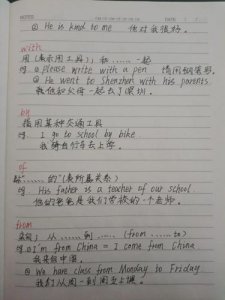 NOTES
DATE
② He is kind to me 他对我很好。
with
用(表示用工具)；和……一起
例 ① please write with a pen 请用钢笔写。
② He went to Shenzhen with his parents.
他和父母一起去了深圳。
by
指用某种交通工具
例 I go to school by bike
我骑自行车去上学。
of
……的"(表所属关系)
例 His father is a teacher of our school.
他的爸爸是我们学校的一个老师。
from
来自；从……到…… (from……to)
例 ① I'm from China = I come from China
我来自中国。
② We have class from Monday to Friday
我们从周一到周五上课。